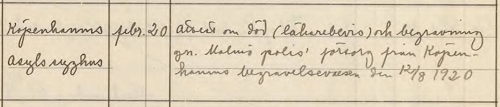 Köpenhamns febr. 20 attest om död (läkarebevis) och begravning
gn. Malmö polis' försorg från Köpen-
Asyls syghus hamns begravelsevæsen den 12/3 1920